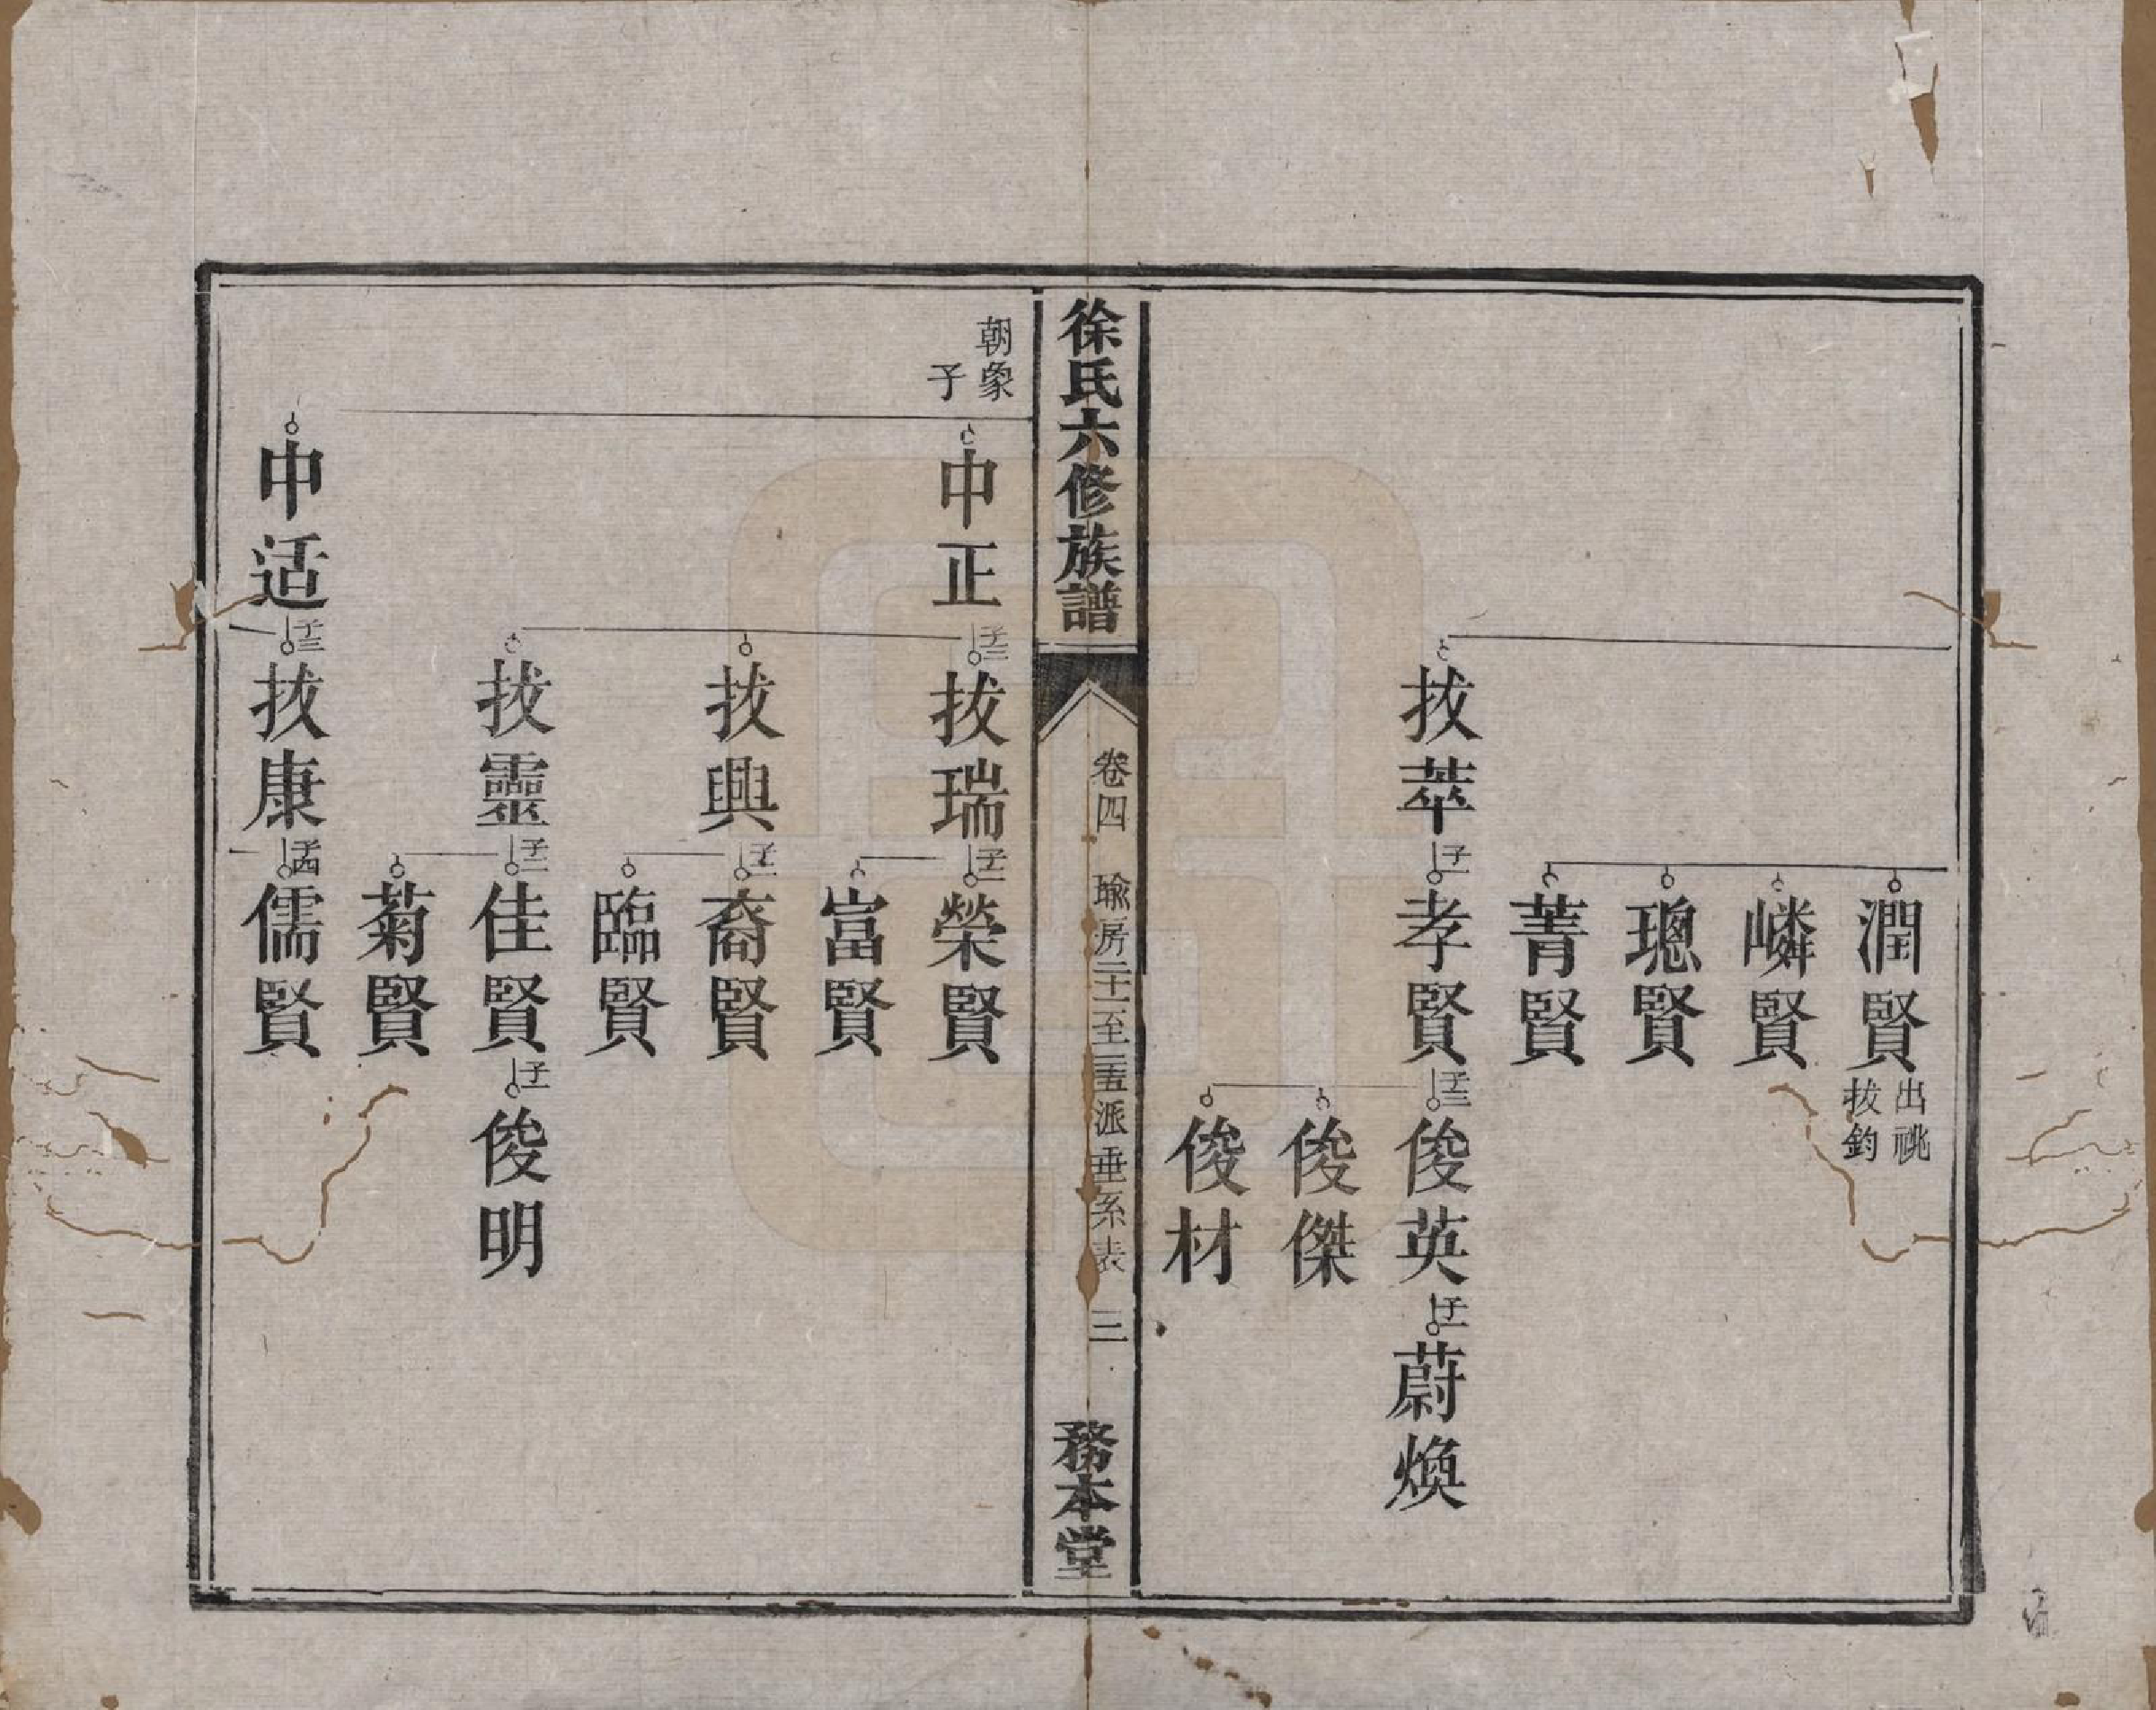 潤賢
出祧
拔鈞
嶙賢
璁賢
菁賢
拔萃 子一 孝賢 子三 俊英 子一 蔚煥
俊傑
俊材
徐氏六修族譜
卷四 瑜房二十一至二十五派垂系表 三
務本堂
朝象
子
中正 子三 拔瑞 子二 榮賢
富賢
拔興 子二 裔賢
臨賢
拔靈 子二 佳賢 子一 俊明
菊賢
中适 子三 拔康 子四 儒賢